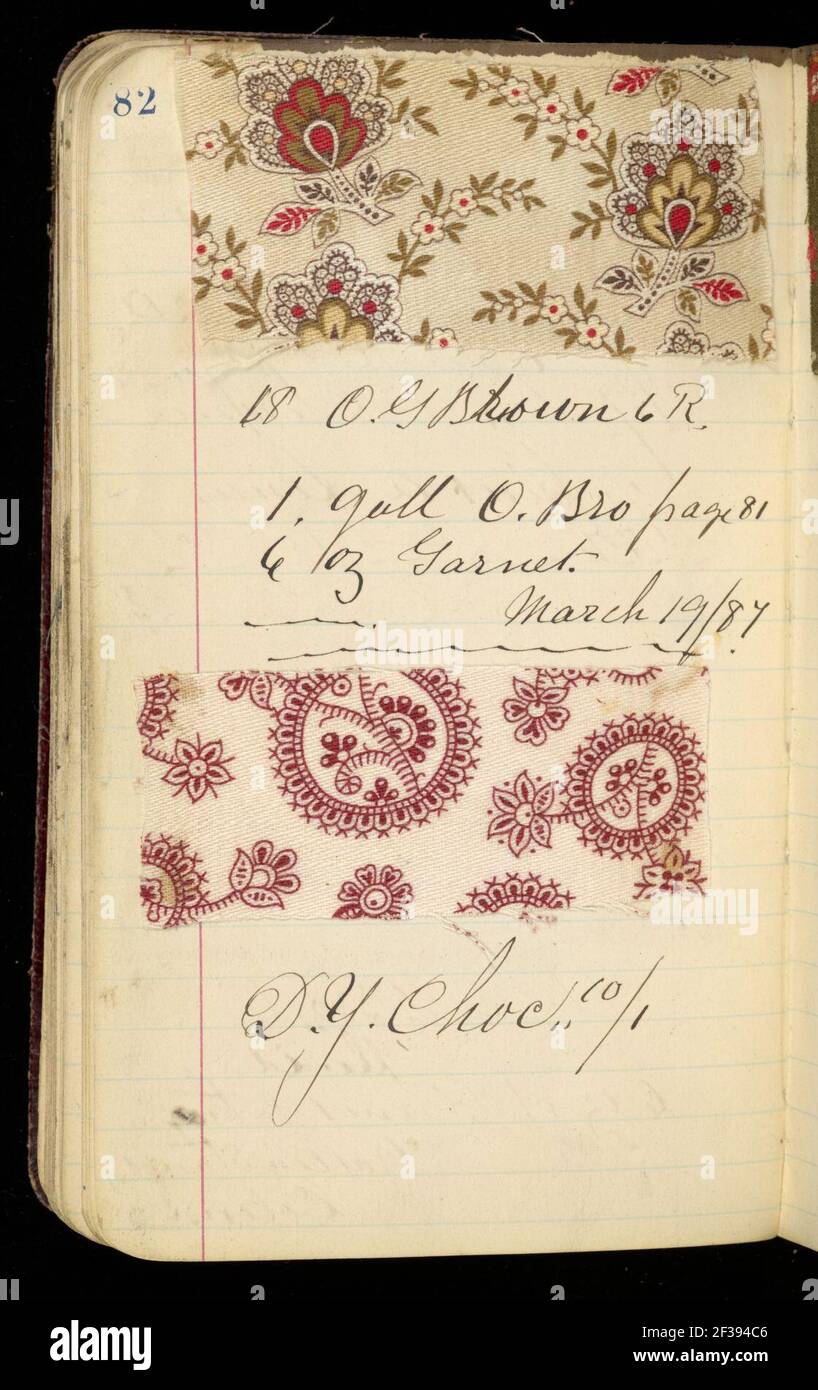 82
68 O.G Brown 6 R.
1. gall O. Bro page 81
6 oz Garnet.
March 19/87.
D.Y. Choc,, 10/1
alamy
Image ID: 2F394C6
www.alamy.com